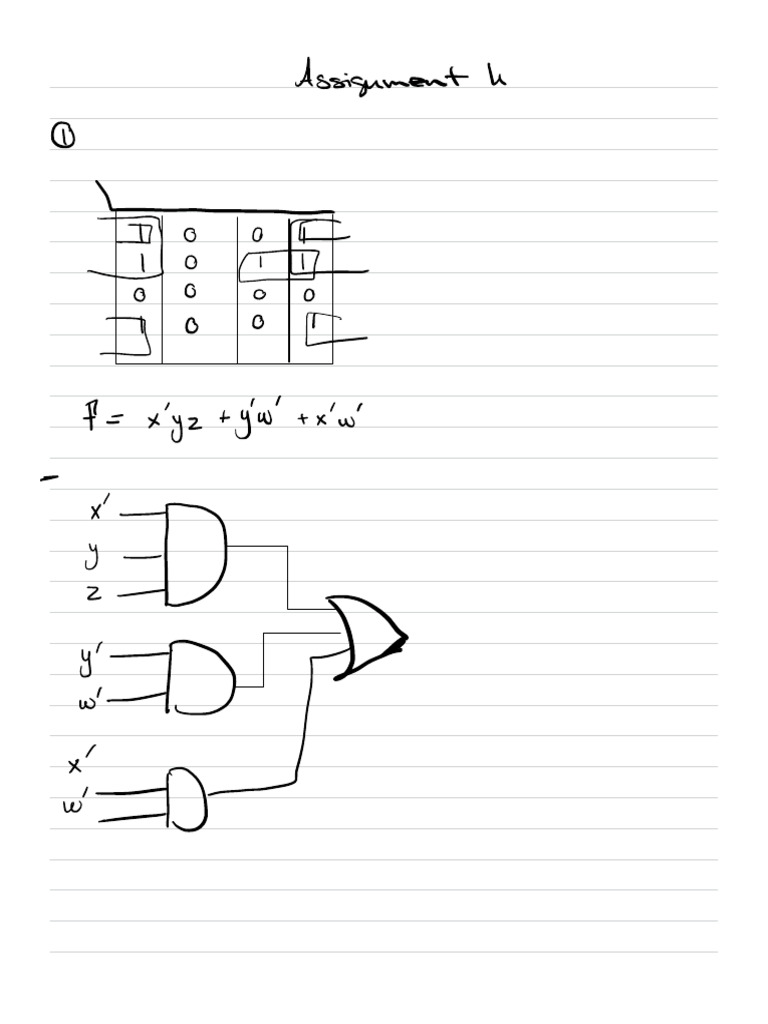 Assignment 4
①
1 0 0 1
1 0 1 1
0 0 0 0
1 0 0 1
F = x'yz + y'w' + x'w'
x'
y
z
y'
w'
x'
w'